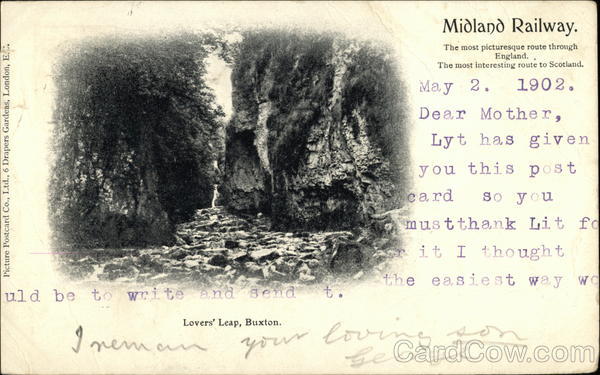 Midland Railway.
The most picturesque route through
England.
The most interesting route to Scotland.
May 2. 1902.
Dear Mother,
Lyt has given
you this post
card so you
mustthank Lit fo
r it I thought
the easiest way wo
uld be to write and send t.
Lovers' Leap, Buxton.
I remain your loving son
Picture Postcard Co., Ltd., 6 Drapers Gardens, London, E.
CardCow.com